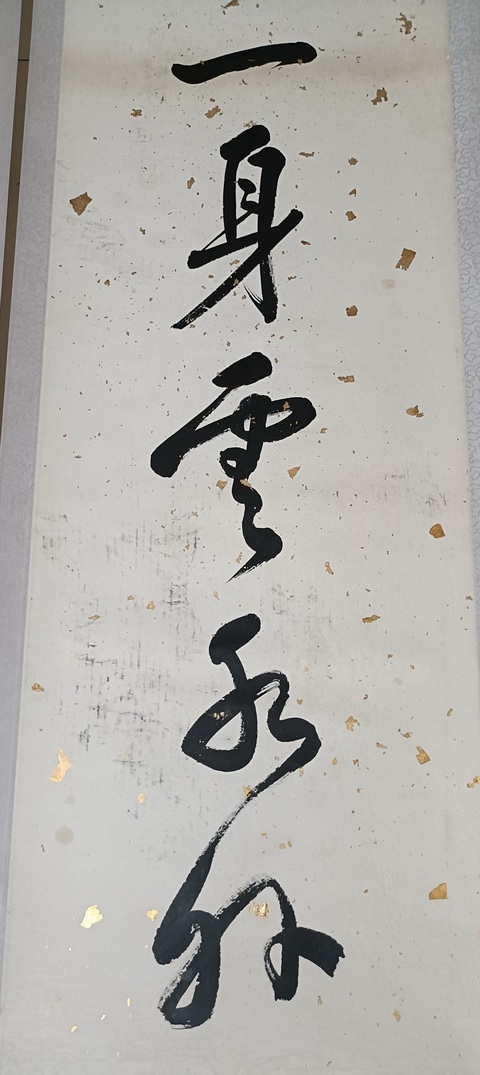 一身雲水外